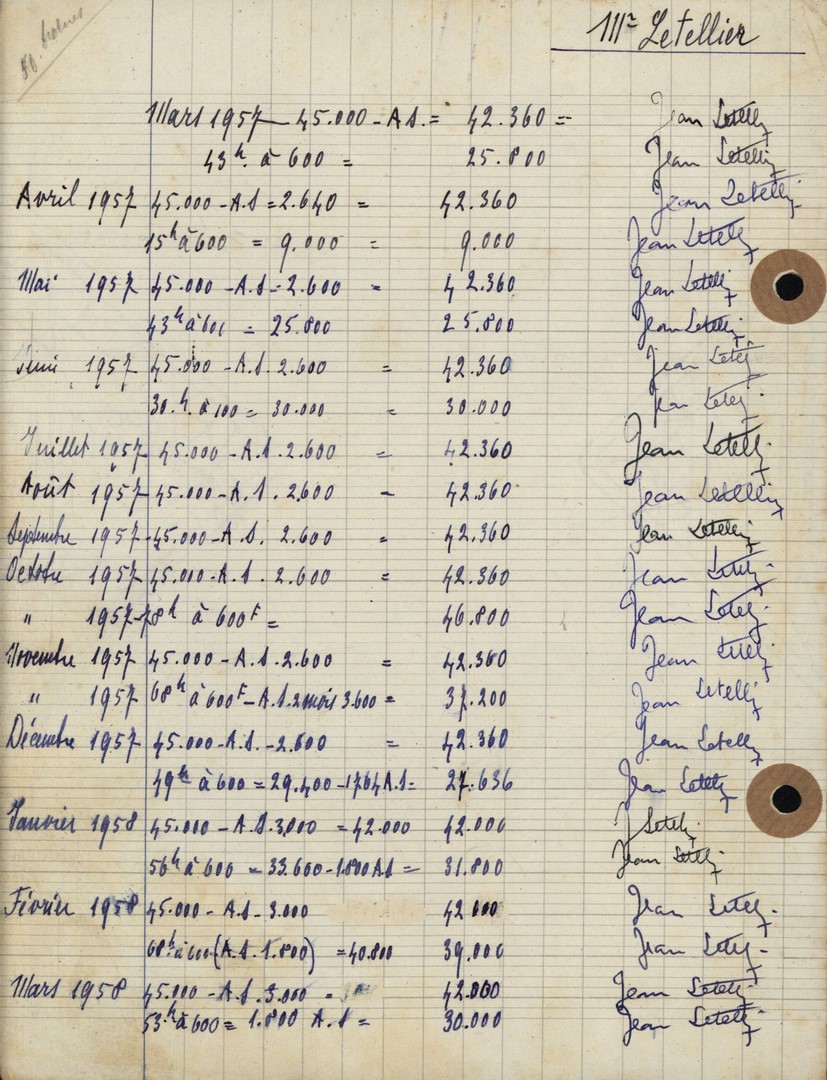 Mr Letellier
Mars 1957 — 45.000 - A.S. = 42.360 = Jean Letellier
43h à 600 = 25.800 Jean Letellier
Avril 1957 45.000 - A.S = 2.640 = 42.360 Jean Letellier
15h à 600 = 9.000 = 9.000 Jean Letellier
Mai 1957 45.000 - A.S - 2.600 = 42.360 Jean Letellier
43h à 600 = 25.800 25.800 Jean Letellier
Juin 1957 45.000 - A.S. 2.600 = 42.360 Jean Letellier
30.h. à 100 = 30.000 = 30.000 Jean Letellier
Juillet 1957 45.000 - A.S. 2.600 = 42.360 Jean Letellier
Août 1957 - 45.000 - A.S. 2.600 - 42.360 Jean Letellier
Septembre 1957 - 45.000 - A.S. 2.600 = 42.360 Jean Letellier
Octobre 1957 45.000 - A.S. 2.600 = 42.360 Jean Letellier
" 1957 - 78h à 600F = 46.800 Jean Letellier
Novembre 1957 45.000 - A.S. 2.600 = 42.360 Jean Letellier
" 1957 68h à 600F - A.S. 2 mois 3.600 = 37.200 Jean Letellier
Décembre 1957 45.000 - A.S. - 2.600 = 42.360 Jean Letellier
49h à 600 = 29.400 - 1764 A.S = 27.636 Jean Letellier
Janvier 1958 45.000 - A.S. 3.000 = 42.000 42.000 J Letellier
56h à 600 = 33.600 - 1.800 AS = 31.800 Jean Letellier
Février 1958 45.000 - A.S - 3.000 42.000 Jean Letellier
68h à 600 (A.S. 1.800) = 40.800 39.000 Jean Letellier
Mars 1958 45.000 - A.S. 3.000 = 42.000 Jean Letellier
53h à 600 = 1.800 A.S = 30.000 Jean Letellier